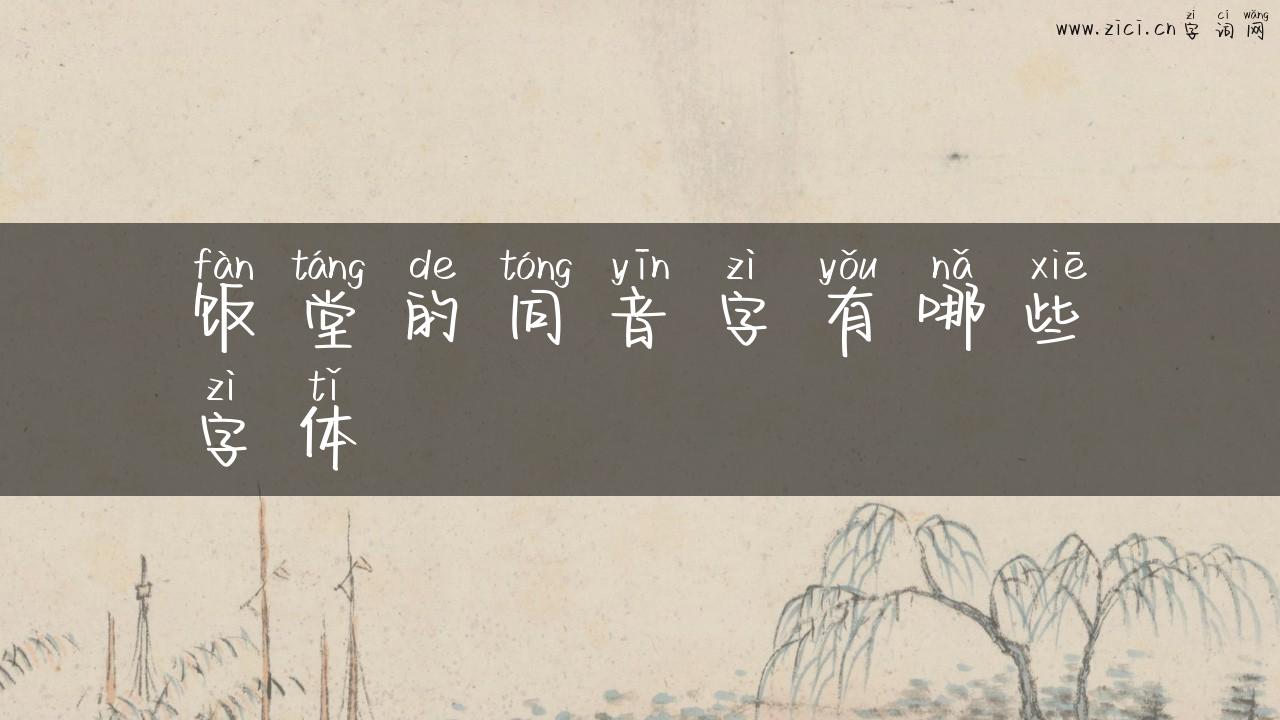 zì cí wǎng
www.zici.cn 字词网
fàn táng de tóng yīn zì yǒu nǎ xiē
饭堂的同音字有哪些
zì tǐ
字体